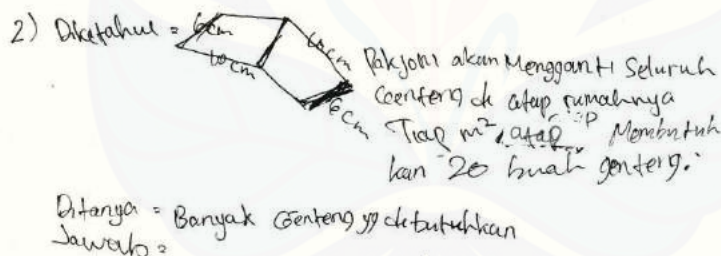 2) Diketahui = 6 cm
10 cm
10 cm
6 cm
Pakjoni akan Mengganti Seluruh
Genteng di atap rumahnya
Tiap m², atap Membutuh
kan 20 buah genteng.
Ditanya = Banyak Genteng yg dibutuhkan
Jawab =